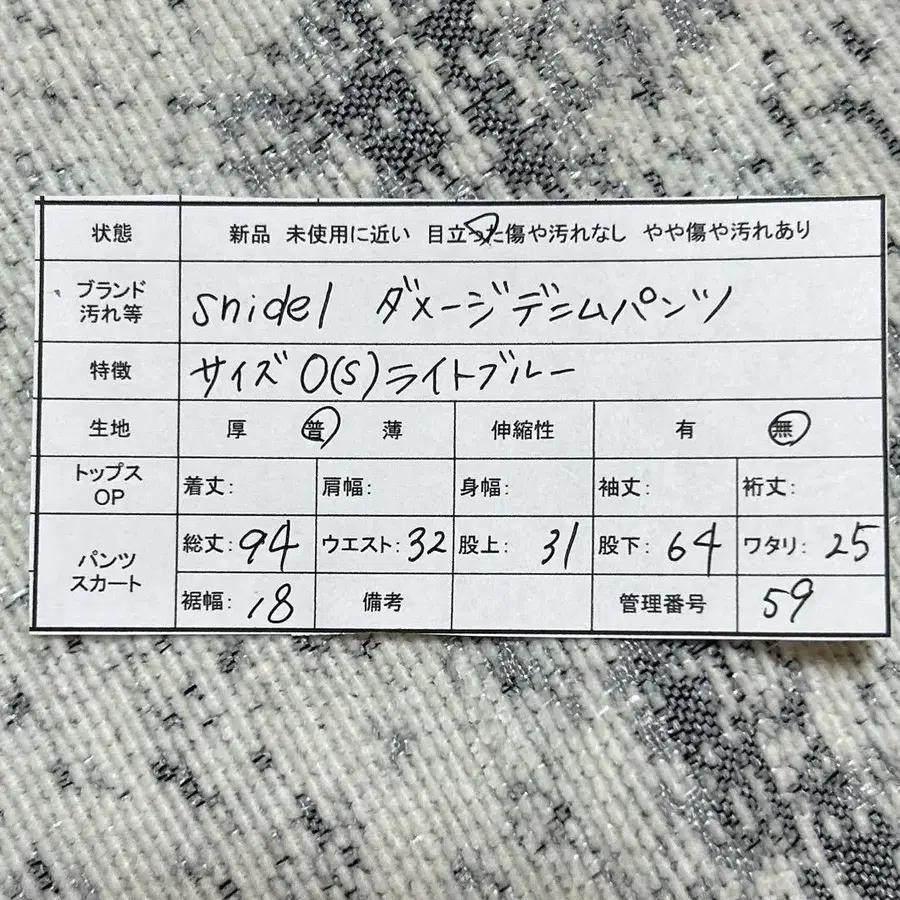 状態 新品 未使用に近い 目立った傷や汚れなし やや傷や汚れあり
ブランド 汚れ等 snidel ダメージデニムパンツ
特徴 サイズ 0(S) ライトブルー
生地 厚 普 薄 伸縮性 有 無
トップス OP 着丈: 肩幅: 身幅: 袖丈: 裄丈:
パンツ スカート 総丈: 94 ウエスト: 32 股上: 31 股下: 64 ワタリ: 25
裾幅: 18 備考 管理番号 59